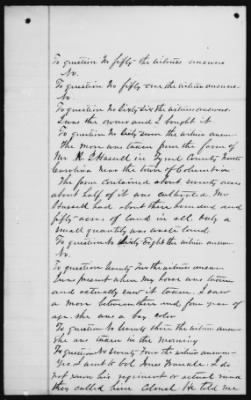 To question No fifty the witness answers
No.
To question No fifty one the witness answers
No
To question No Sixty Six the witness answers
I was the owner and I bought it
To question No Sixty seven the witness answers
The mare was taken from the farm of
Mr H. Hassell in Tyrrell County North
Carolina near the town of Columbia
The farm contained about seventy acres
about half of it was cultivated Mr
Hassell had about three hundred and
fifty acres of land in all only a
small quantity was wood land.
To question No Sixty Eight the witness answers
No.
To question Seventy two the witness answers
I was present when my horse was taken
and actually saw it taken. I saw
a mare between three and four years of
age she was a bay color
To question No Seventy three the witness answers
she was taken in the morning
To question No Seventy four the witness answers
Yes I went to Col Jones Frankle. I do
not know his regiment or actual rank
they called him Colonel He told me